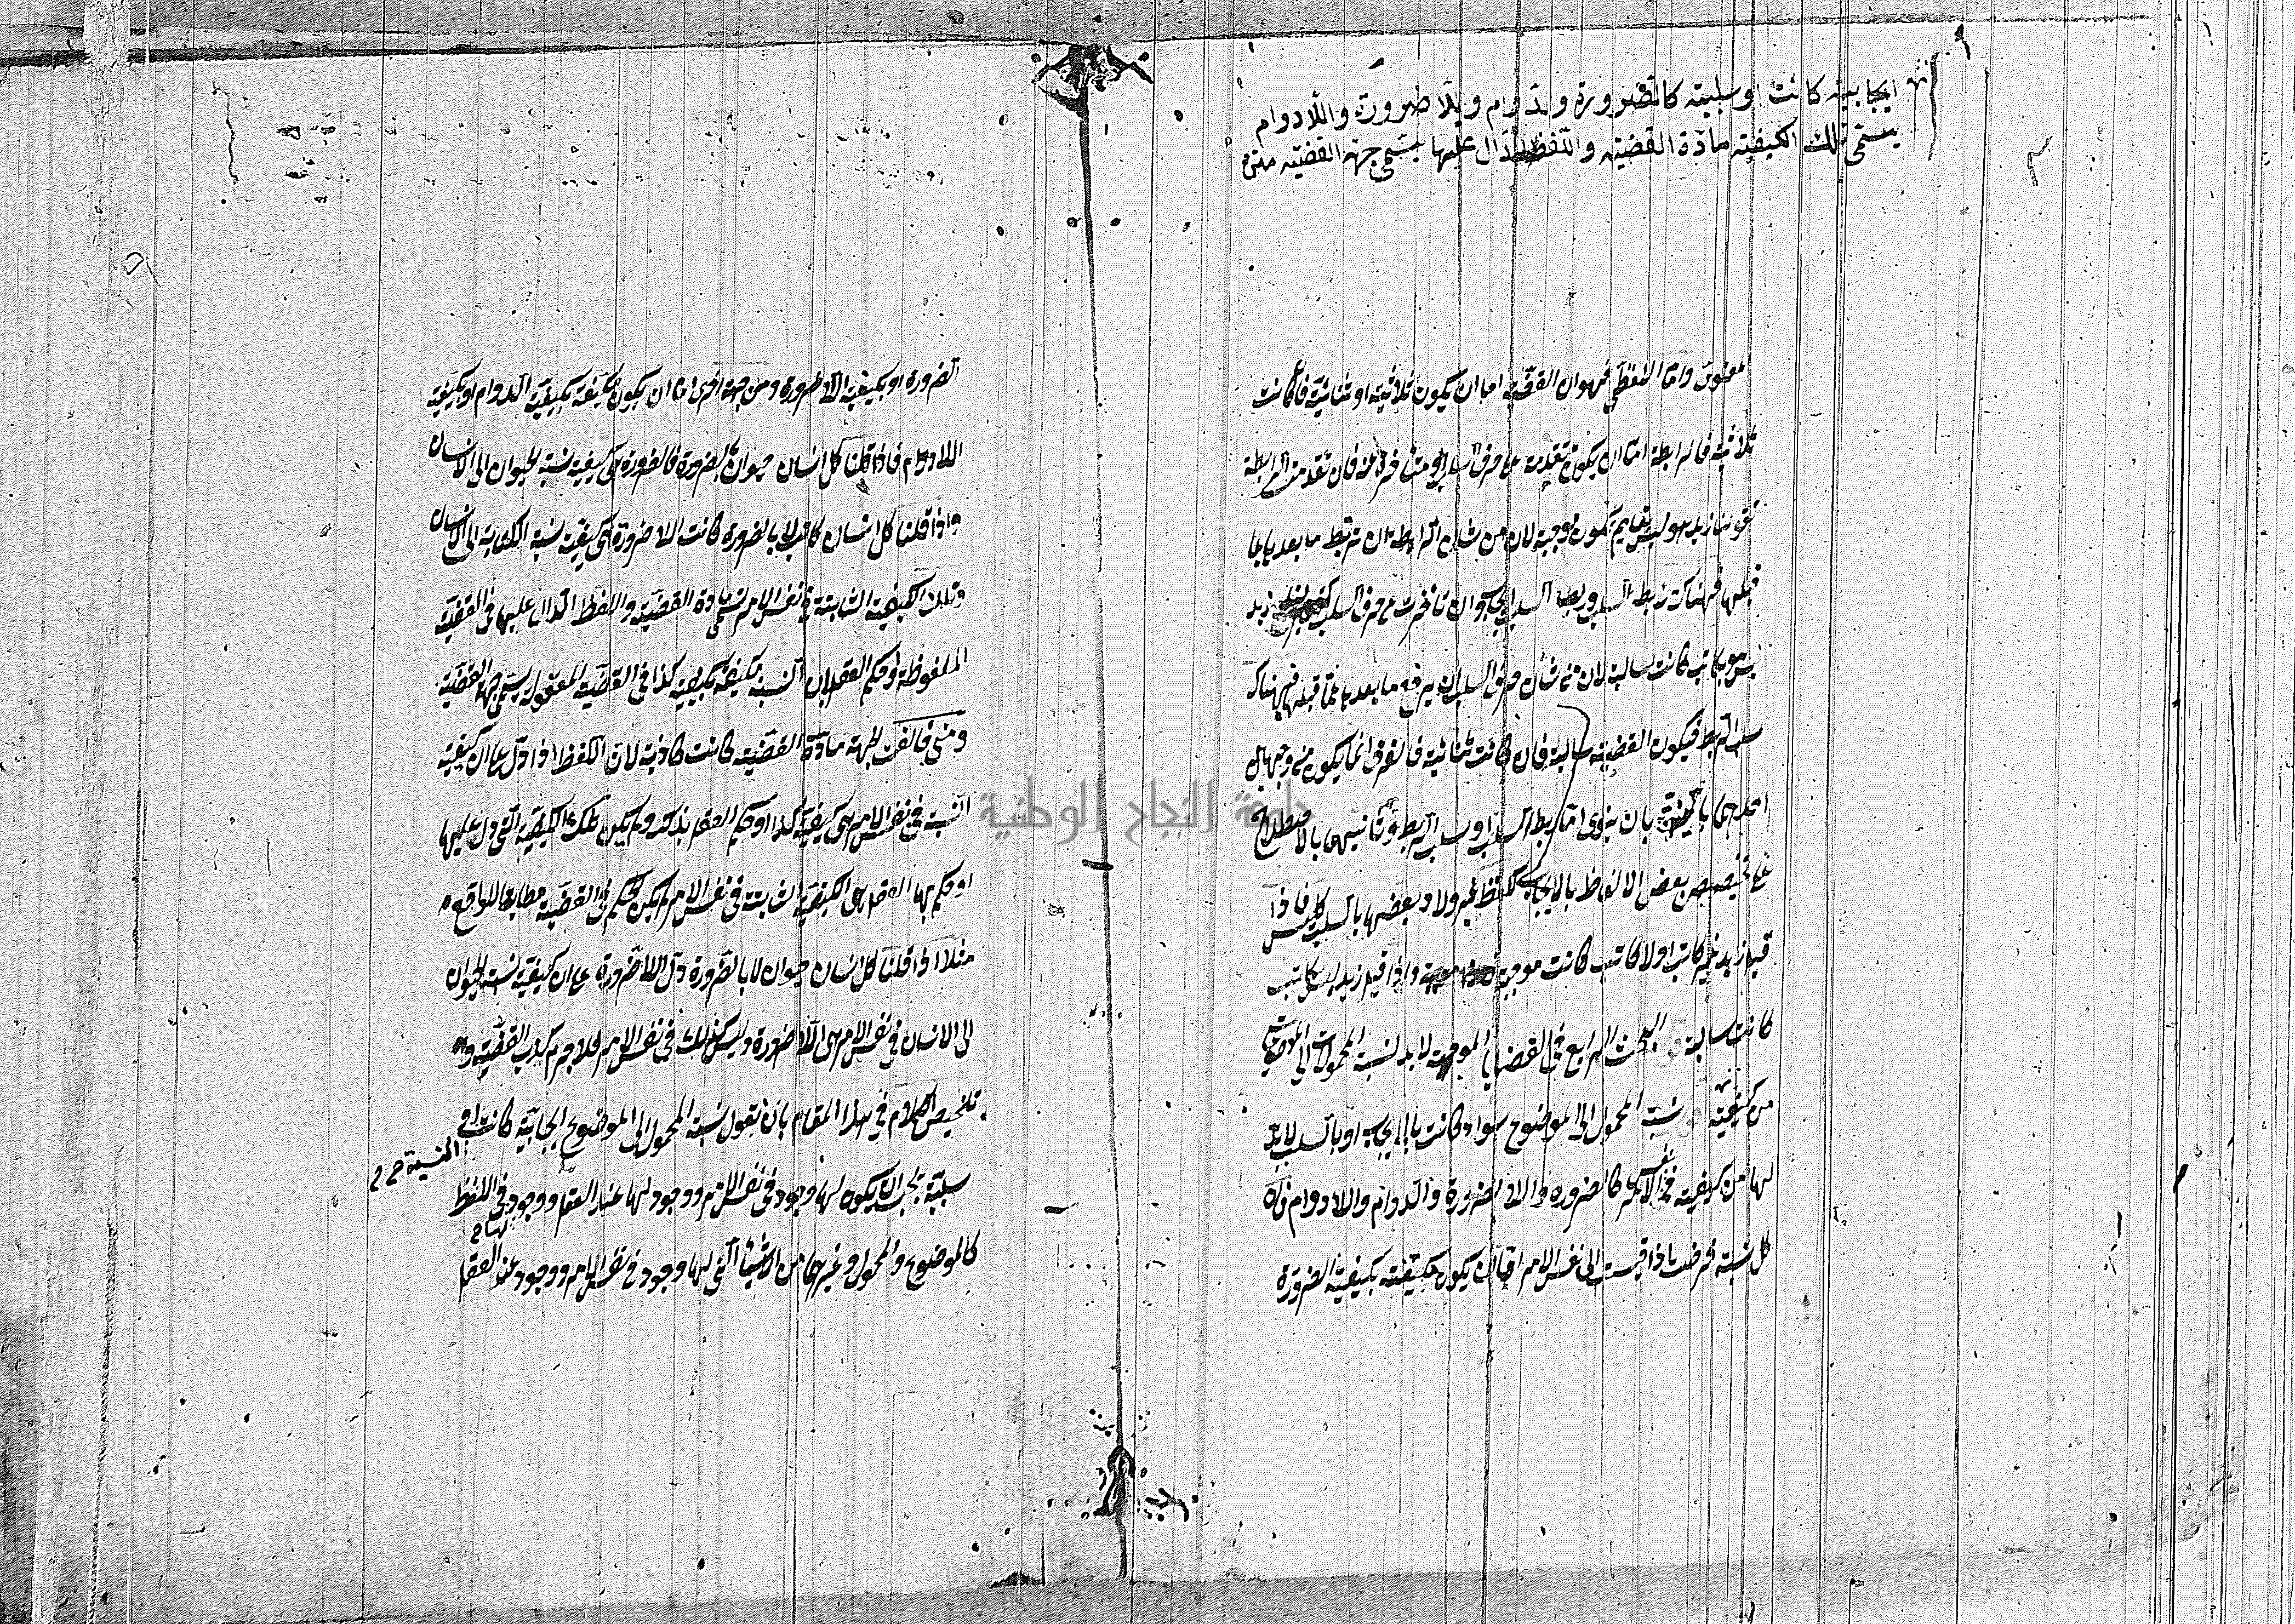 ايجابية كانت او سلبية كالضرورة والدوام وبلا ضرورة واللادوام
يسمى تلك الكيفية مادة القضية واللفظ الدال عليها يسمى جهة القضية منه
معنوى واما اللفظى فهو ان القضية اما ان يكون ثلاثية او ثنائية فان كانت
ثلاثية فالرابطة اما ان يكون متقدمة على حرف السلب او متأخرة عنه فان تقدمت الرابطة
كقولنا زيد هو ليس بقايم يكون موجبة لان من شان الرابطة ان تربط ما بعدها بما
قبلها فهناك ربط السلب وربط السلب ايجاب وان تأخرت عن حرف السلب كقولنا زيد
ليس هو بكاتب كانت سالبة لان من شان حرف السلب ان يرفع ما بعدها عما قبلها فهناك
سلب الربط فيكون القضية سالبة فان كانت ثنائية فالفرق انما يكون من وجهين
احدهما بالنية بان ينوى اما ربط السلب او سلب الربط وثانيهما بالاصطلاح
على تخصيص بعض الالفاظ بالايجاب كلفظ غير ولا وبعضها بالسلب كليس فاذا
قيل زيد غير كاتب او لا كاتب كانت موجبة واذا قيل زيد ليس بكاتب
كانت سالبة البحث الرابع في القضايا الموجهة لا بد لنسبة المحمولات الى الموضوعات
من كيفية نسبة المحمول الى الموضوع سواء كانت بالايجاب او بالسلب لا بد
لها من كيفية في نفس الامر كالضرورة واللا ضرورة والدوام واللادوام فان
كل نسبة فرضت اذا قيست الى نفس الامر اما ان يكون مكيفة بكيفية الضرورة
الضرورة او بكيفية اللا ضرورة ومن جهة اخرى اما ان يكون مكيفة بكيفية الدوام او بكيفية
اللادوام فاذا قلنا كل انسان حيوان بالضرورة فالضرورة هى كيفية نسبة الحيوان الى الانسان
واذا قلنا كل انسان كاتب لا بالضرورة كانت اللا ضرورة هى كيفية نسبة الكتابة الى الانسان
وتلك الكيفية الثابتة في نفس الامر تسمى مادة القضية واللفظ الدال عليها في القضية
الملفوظة او حكم العقل بان النسبة مكيفة بكيفية كذا في القضية المعقولة يسمى جهة القضية
ومتى خالفت الجهة مادة القضية كانت كاذبة لان اللفظ اذا دل على ان كيفية
النسبة في نفس الامر هى كيفية كذا او حكم العقل بذلك ولم يكن تلك الكيفية التى دل عليها
او حكم بها العقل هى الكيفية الثابتة في نفس الامر لم يكن الحكم في القضية مطابقا للواقع
مثلا اذا قلنا كل انسان حيوان لا بالضرورة دل اللا ضرورة على ان كيفية نسبة الحيوان
الى الانسان في نفس الامر هى اللا ضرورة وليس كذلك في نفس الامر فلا جرم كذبت القضية
وتلخيص الكلام في هذا المقام بان نقول نسبة المحمول الى الموضوع ايجابية كانت النسبة او
سلبية يجب ان يكون لها وجود في نفس الامر ووجود لها عند العقل ووجود في اللفظ
كالموضوع والمحمول وغيرهما من الاشياء التى لها وجود في نفس الامر ووجود عند العقل